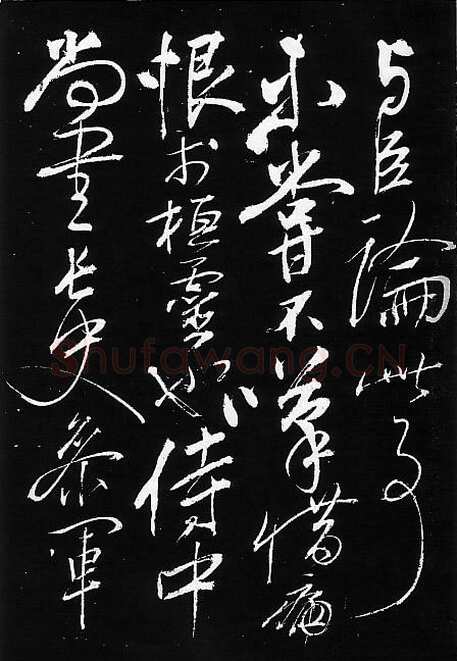 与臣論此事
未甞不嘆惜痛
恨於桓靈也侍中
尚書長史參軍
Shufawang.CN